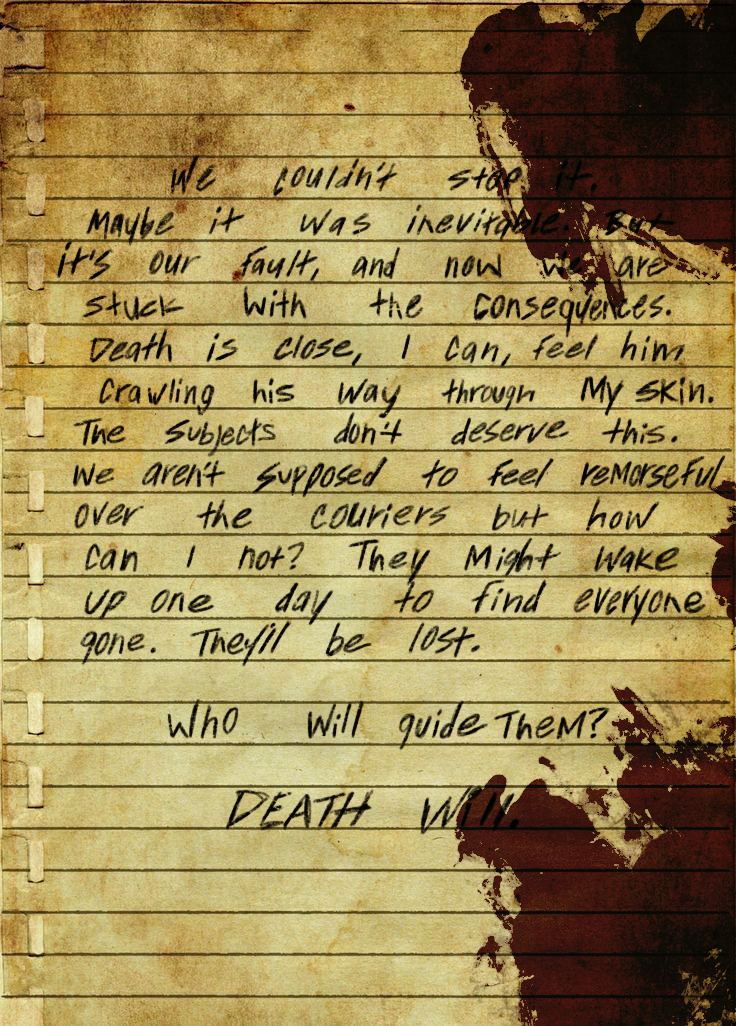 We couldn't stop it.
Maybe it was inevitable. But
it's our fault, and now we are
stuck with the consequences.
Death is close, I can, feel him
Crawling his way through My skin.
The Subjects don't deserve this.
We aren't supposed to feel reMorseful
over the couriers but how
Can I not? They Might wake
up one day to find everyone
gone. They'll be lost.
Who Will guide TheM?
DEATH Will.